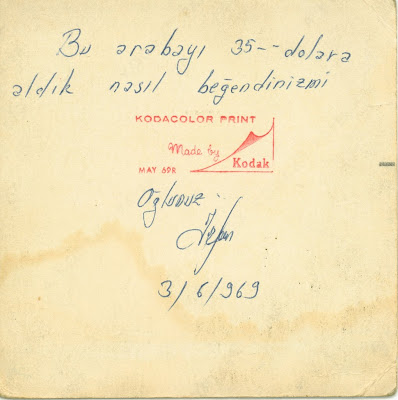 Bu arabayı 35-- dolara
aldık nasıl beğendinizmi
KODACOLOR PRINT
Made by
Kodak
MAY 69R
Oğlunuz
3/6/969